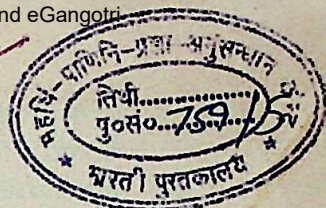 nd eGangotri
महर्षि-पाणिनि-प्रज्ञा अनुसन्धान
तिथी...............
पु०सं०..759/5
* भारती पुस्तकालय *